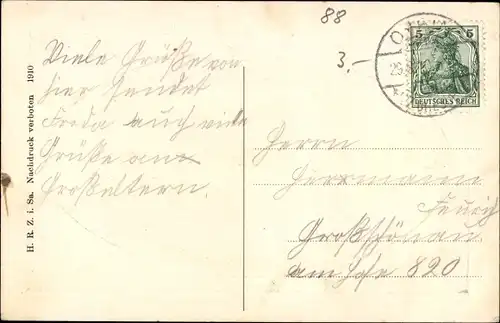 88
3.-
5 5
DEUTSCHES REICH
Viele Grüße von
hier sendet
Freda auch viele
Grüße an
Großeltern.
Herrn
Herrmann
Feurig
Großschönau
am Hofe 820
H. R. Z. i. Sa. Nachdruck verboten 1910